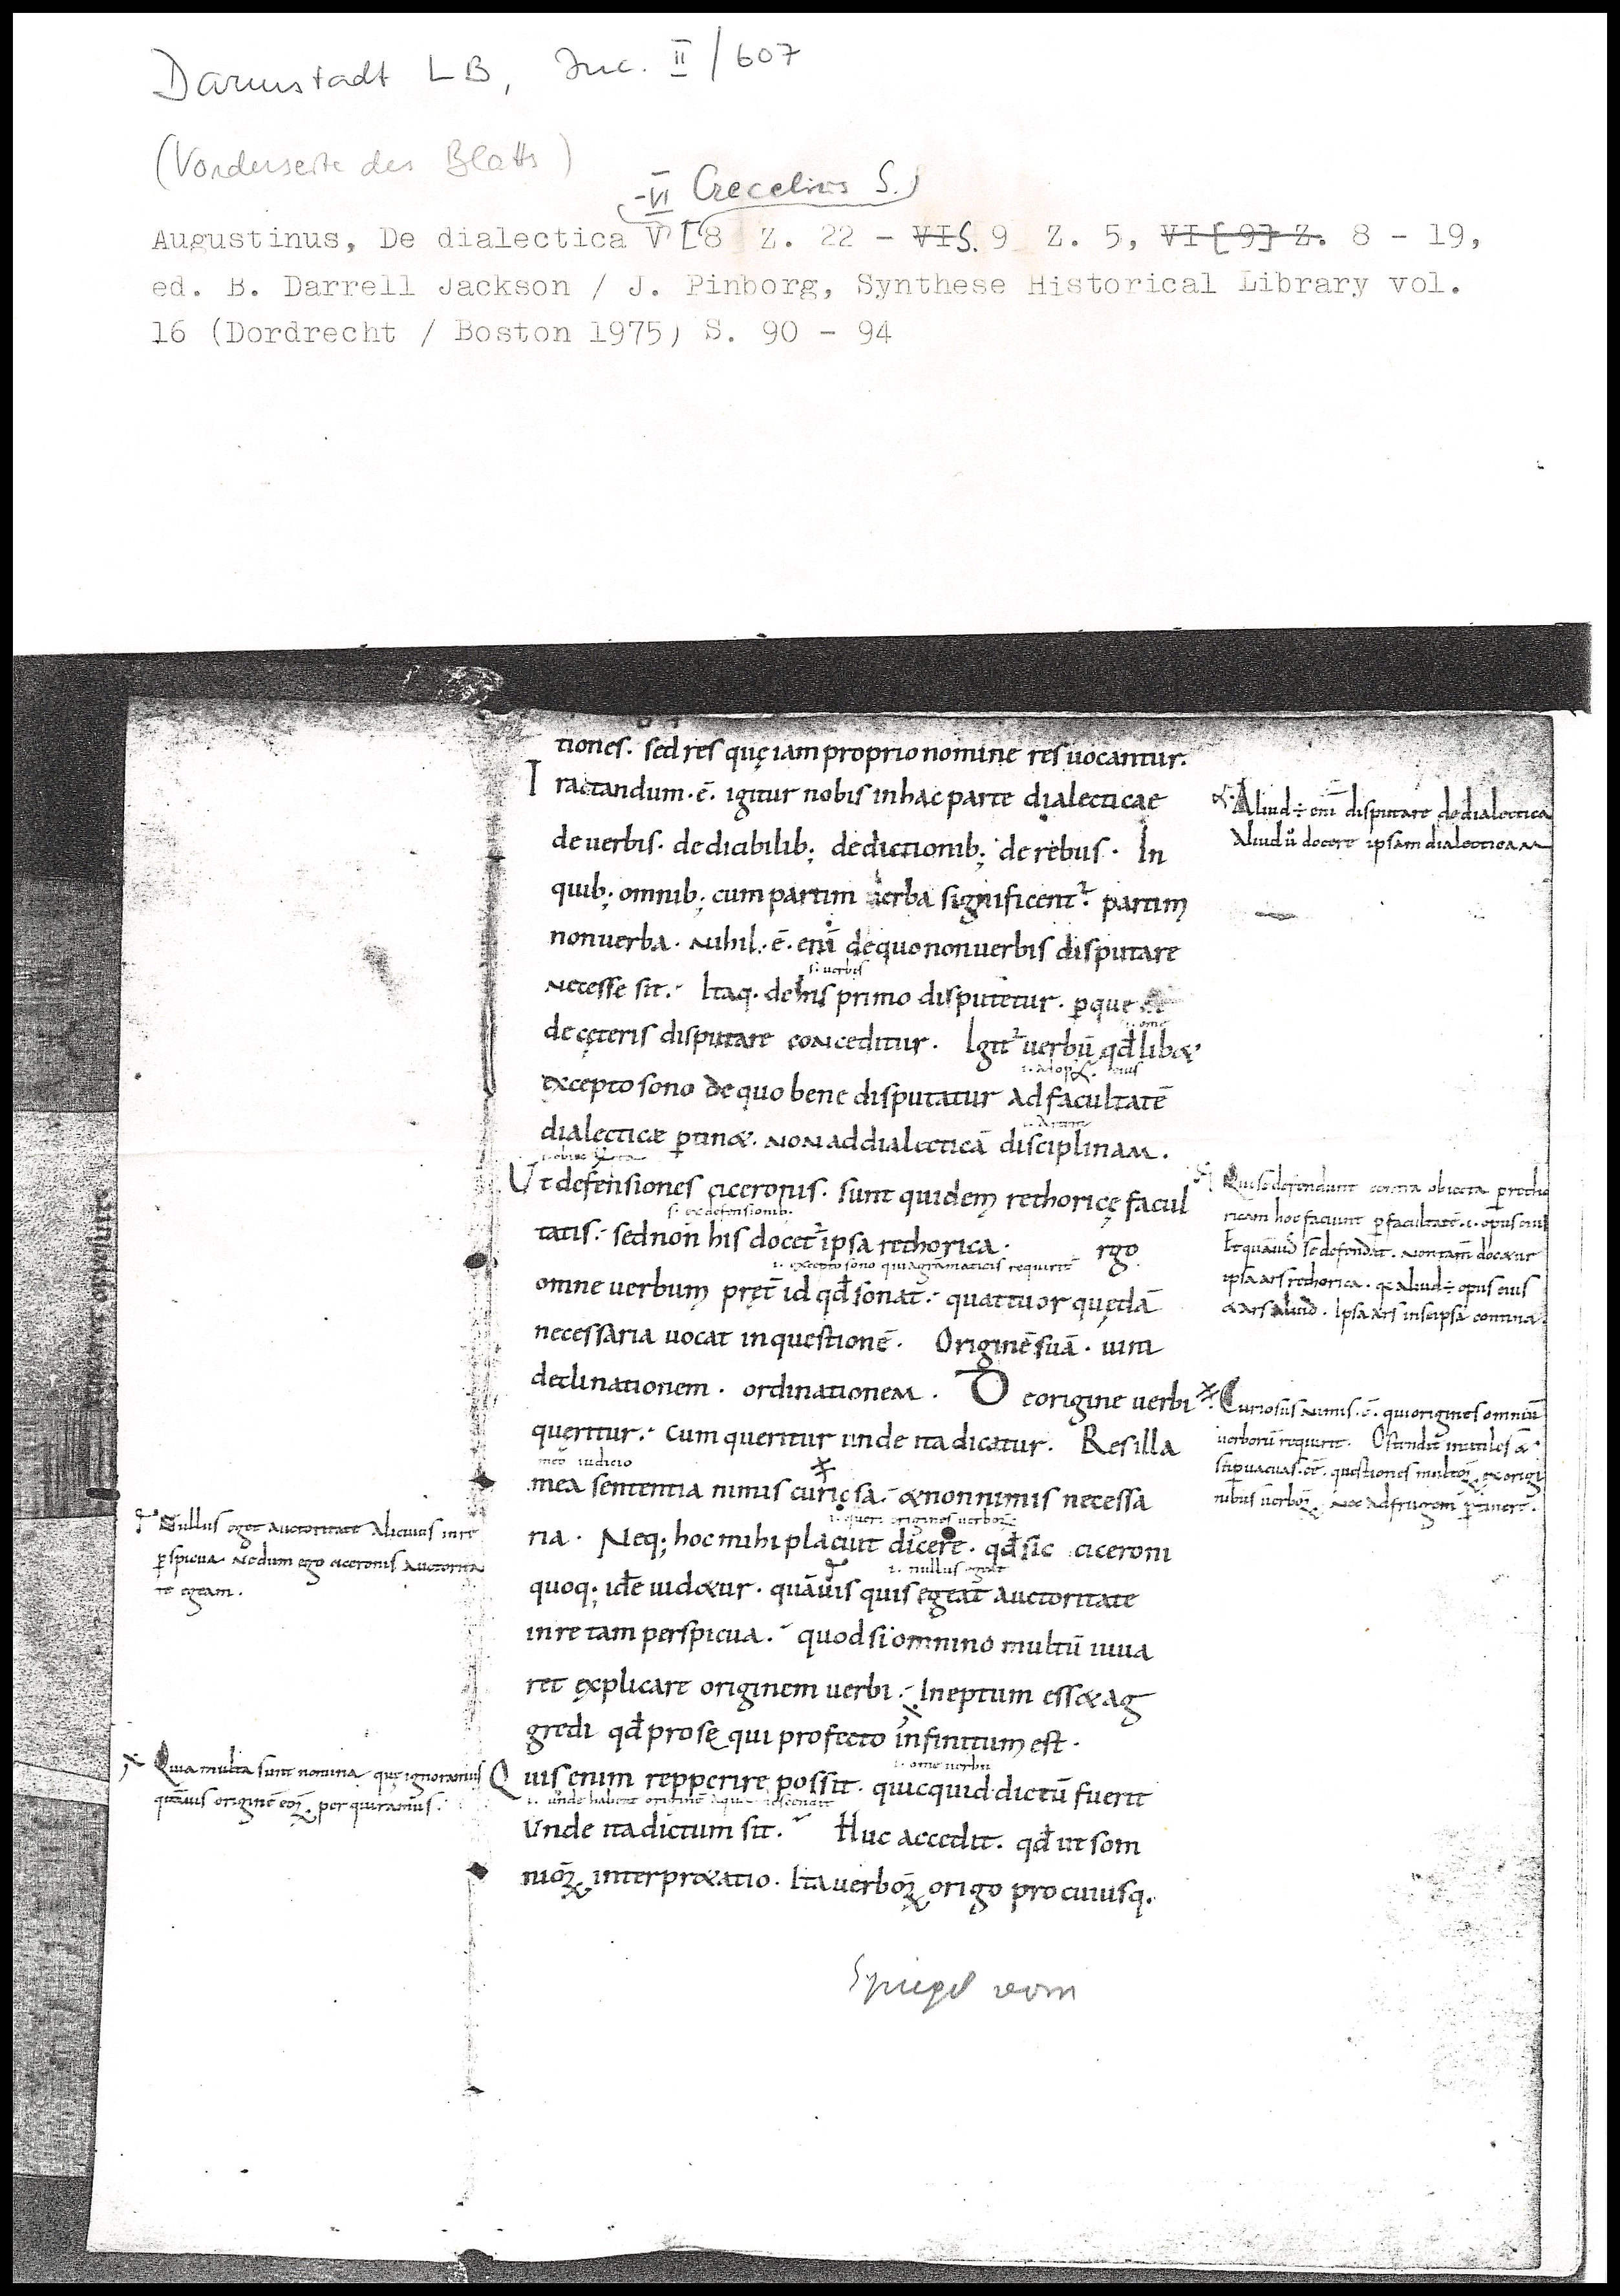 Darmstadt LB, Inc. II/607
(Vorderseite des Blatts)
-VI Crecelius S.
Augustinus, De dialectica V [8 Z. 22 - VI S. 9 Z. 5, VI [9] Z. 8 - 19,
ed. B. Darrell Jackson / J. Pinborg, Synthese Historical Library vol.
16 (Dordrecht / Boston 1975) S. 90 - 94
tiones. sed res quę iam proprio nomine res uocantur.
Tractandum .ē. igitur nobis in hac parte dialecticae
de uerbis. de dicibilib; de dictionib; de rebus. In
quib; omnib; cum partim uerba significent᷑. partim
non uerba. Nihil .ē. enī de quo non uerbis disputare
s. uerbis
Necesse sit. Itaq. de his primo disputetur. p̱ que
i. om̄e
de cęteris disputare conceditur. Igit᷑ uerbū qd̄lib&
excepto sono de quo bene disputatur ad facultatē
dialecticæ p̱tin&. NON ad dialecticā disciplinam.
Ut defensiones ciceronis. sunt quidem rethoricę facul
s. ex defensionib.
tatis. sed non his docet᷑ ipsa rethorica. rgo
i. excepto sono quia gramaticis requirit᷑
omne uerbum pręt᷑ id qd̄ sonat. quattuor quędā
necessaria uocat in questionē. Originē suā. uim
declinationem. ordinationem. De origine uerbi
quęritur. Cum queritur unde ita dicatur. Res illa
meo iudicio
mea sententia nimis curiosa. & non nimis necessa
i. queri origines uerboꝝ
ria. Neq; hoc mihi placuit dicere. qd̄ sic ciceroni
i. nullus egeat
quoq; idē uid&ur. quāuis quis egeat auctoritate
in re tam perspicua. quod si omnino multū iuua
ret explicare originem uerbi. Ineptum ess& ag
gredi qd̄ prosę qui profecto infinitum est.
i. om̄e uerbū
Quis enim repperire possit. quicquid dictū fuerit
Unde ita dictum sit. Huc accedit. qd̄ ut som
nioꝝ interpr&atio. Ita uerboꝝ origo pro cuiusq.
Aliud ÷ enī disputare de dialectica
Aliud ū docere ipsam dialecticam
Qui se defendunt contra obiecta p̱ retho
ricam hoc faciunt p̱ facultatē .i. opus eius
Et quāuis se defendat. Non tam̄ doc&ur
ipsa ars rethorica. quia aliud ÷ opus eius
& ars aliud. Ipsa ars in seipsa contin&
Curiosus nimis .ē. qui origines omniū
uerborū requirit. Ostendit᷑ inutiles &
sup̱uacuas .eē. questiones multoꝝ ex origi
nibus uerboꝝ. Nec ad frugem p̱tinere.
Nullus eget auctoritate alicuius in re
p̱spicua. Nedum ego ciceronis auctorita
te egeam.
Quia multa sunt nomina quę ignoramus
quāuis originē eoꝝ perquiramus.
Spiegel vorn